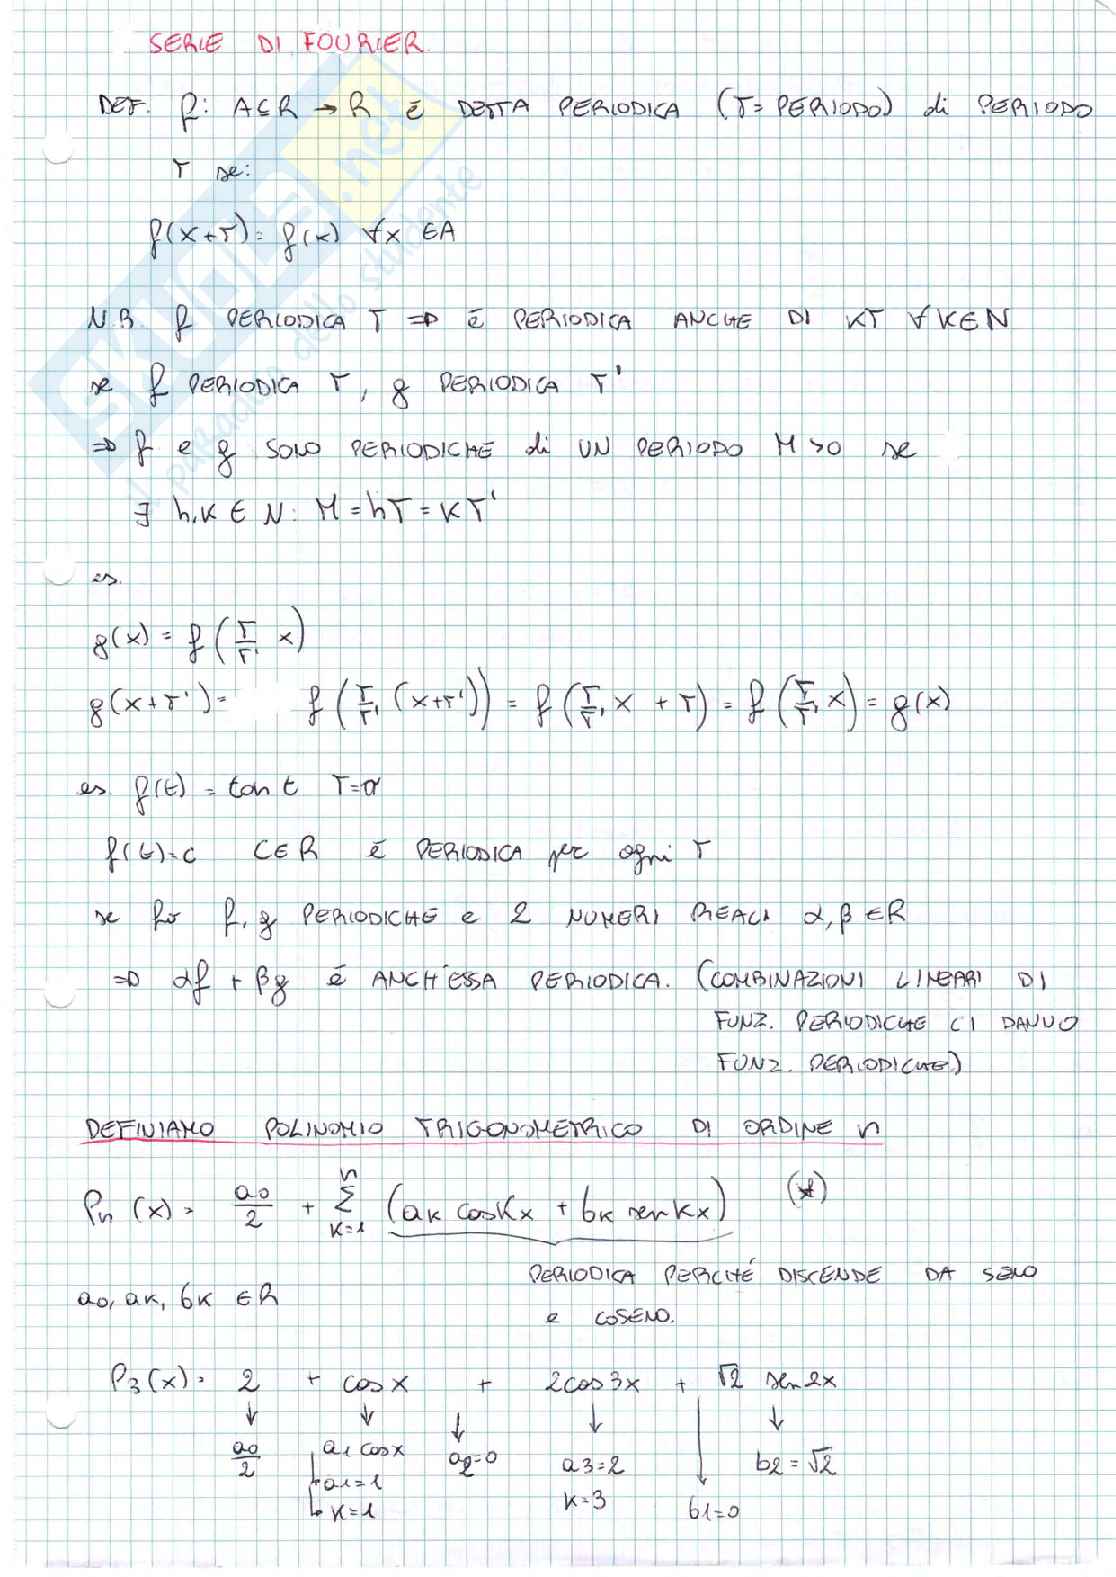 SERIE DI FOURIER
DEF. f: A⊆R → R è DETTA PERIODICA (T = PERIODO) di PERIODO
T se:
f(x+T) = f(x) ∀x ∈A
N.B. f PERIODICA T => è PERIODICA ANCHE DI KT ∀K∈N
se f PERIODICA T, g PERIODICA T'
=> f e g SONO PERIODICHE di UN PERIODO M>0 se
∃ h,K ∈ N: M = hT = KT'
es.
g(x) = f(T/T' x)
g(x+T') = f(T/T' (x+T')) = f(T/T' x + T) = f(T/T' x) = g(x)
es f(t) = tan t T=π
f(t)=c C∈R è PERIODICA per ogni T
se ho f, g PERIODICHE e 2 NUMERI REALI α,β ∈R
=> αf + βg è ANCH'ESSA PERIODICA. (COMBINAZIONI LINEARI DI
FUNZ. PERIODICHE CI DANNO
FUNZ. PERIODICHE)
DEFINIAMO POLINOMIO TRIGONOMETRICO DI ORDINE n
Pn (x) = a0/2 + Σ n K=1 (aK cosKx + bK sen Kx) (*)
PERIODICA PERCHÉ DISCENDE DA SENO
e COSENO.
a0, aK, bK ∈R
P3(x) = 2 + cosx + 2cos3x + √2 sen2x
↓ ↓ ↓ ↓ ↓ ↓
a0/2 a1 cosx a2=0 a3=2 b2=√2
a1=1 K=3 b1=0
K=1
SKUOLA.net
il paradiso dello studente